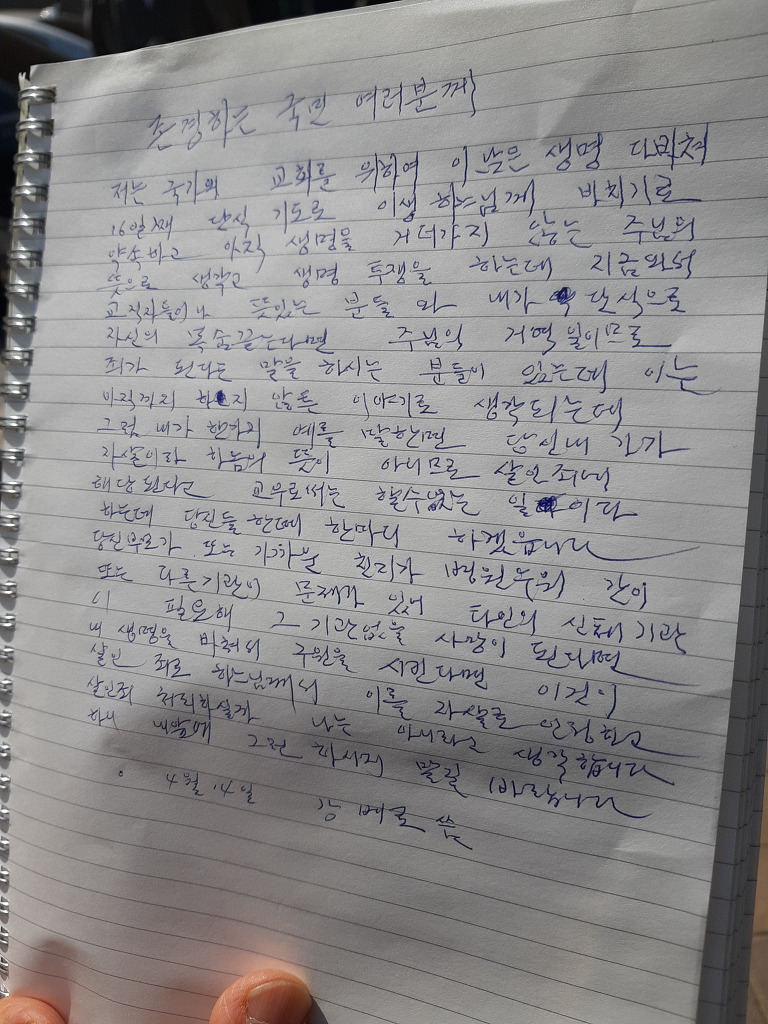 존경하는 국민 여러분께
저는 국가와 교회를 위하여 이 남은 생명 다바쳐
16일째 단식 기도로 이생 하느님께 바치기로
약속하고 아직 생명을 거더가지 않는 주님의
뜻으로 생각고 생명 투쟁을 하는데 지금와서
교직자들이나 뜻있는 분들 와 내가 단식으로
자신의 목숨끝는다면 주님의 거역 일이므로
죄가 된다는 말을 하시는 분들이 있는데 이는
바직까지 하지 않는 이야기로 생각되는데
그럼 내가 한가지 예를 말한면 당신내
자살이라 하늠의 뜻이 아니므로 살인죄에
해당된다고 교우로써는 할수없는 일이다
하는데 당신들한테 한마디 하겠읍니다
당신부모가 또는 가까분 친지가 병원누워 간이
또는 다른기관이 문제가 있어 타인의 신체기관
이 필요해 그 기관없을 사망이 된다면
내 생명을 바쳐서 구원을 시킨다면 이것이
살인 죄로 하느님께서 이를 자살로 인정하고
살인죄 처리하실가 나는 아니라고 생각합니다
하니 내앞에 그런 하시지 말길 바랍니다
4월 14일 강 베로 씀